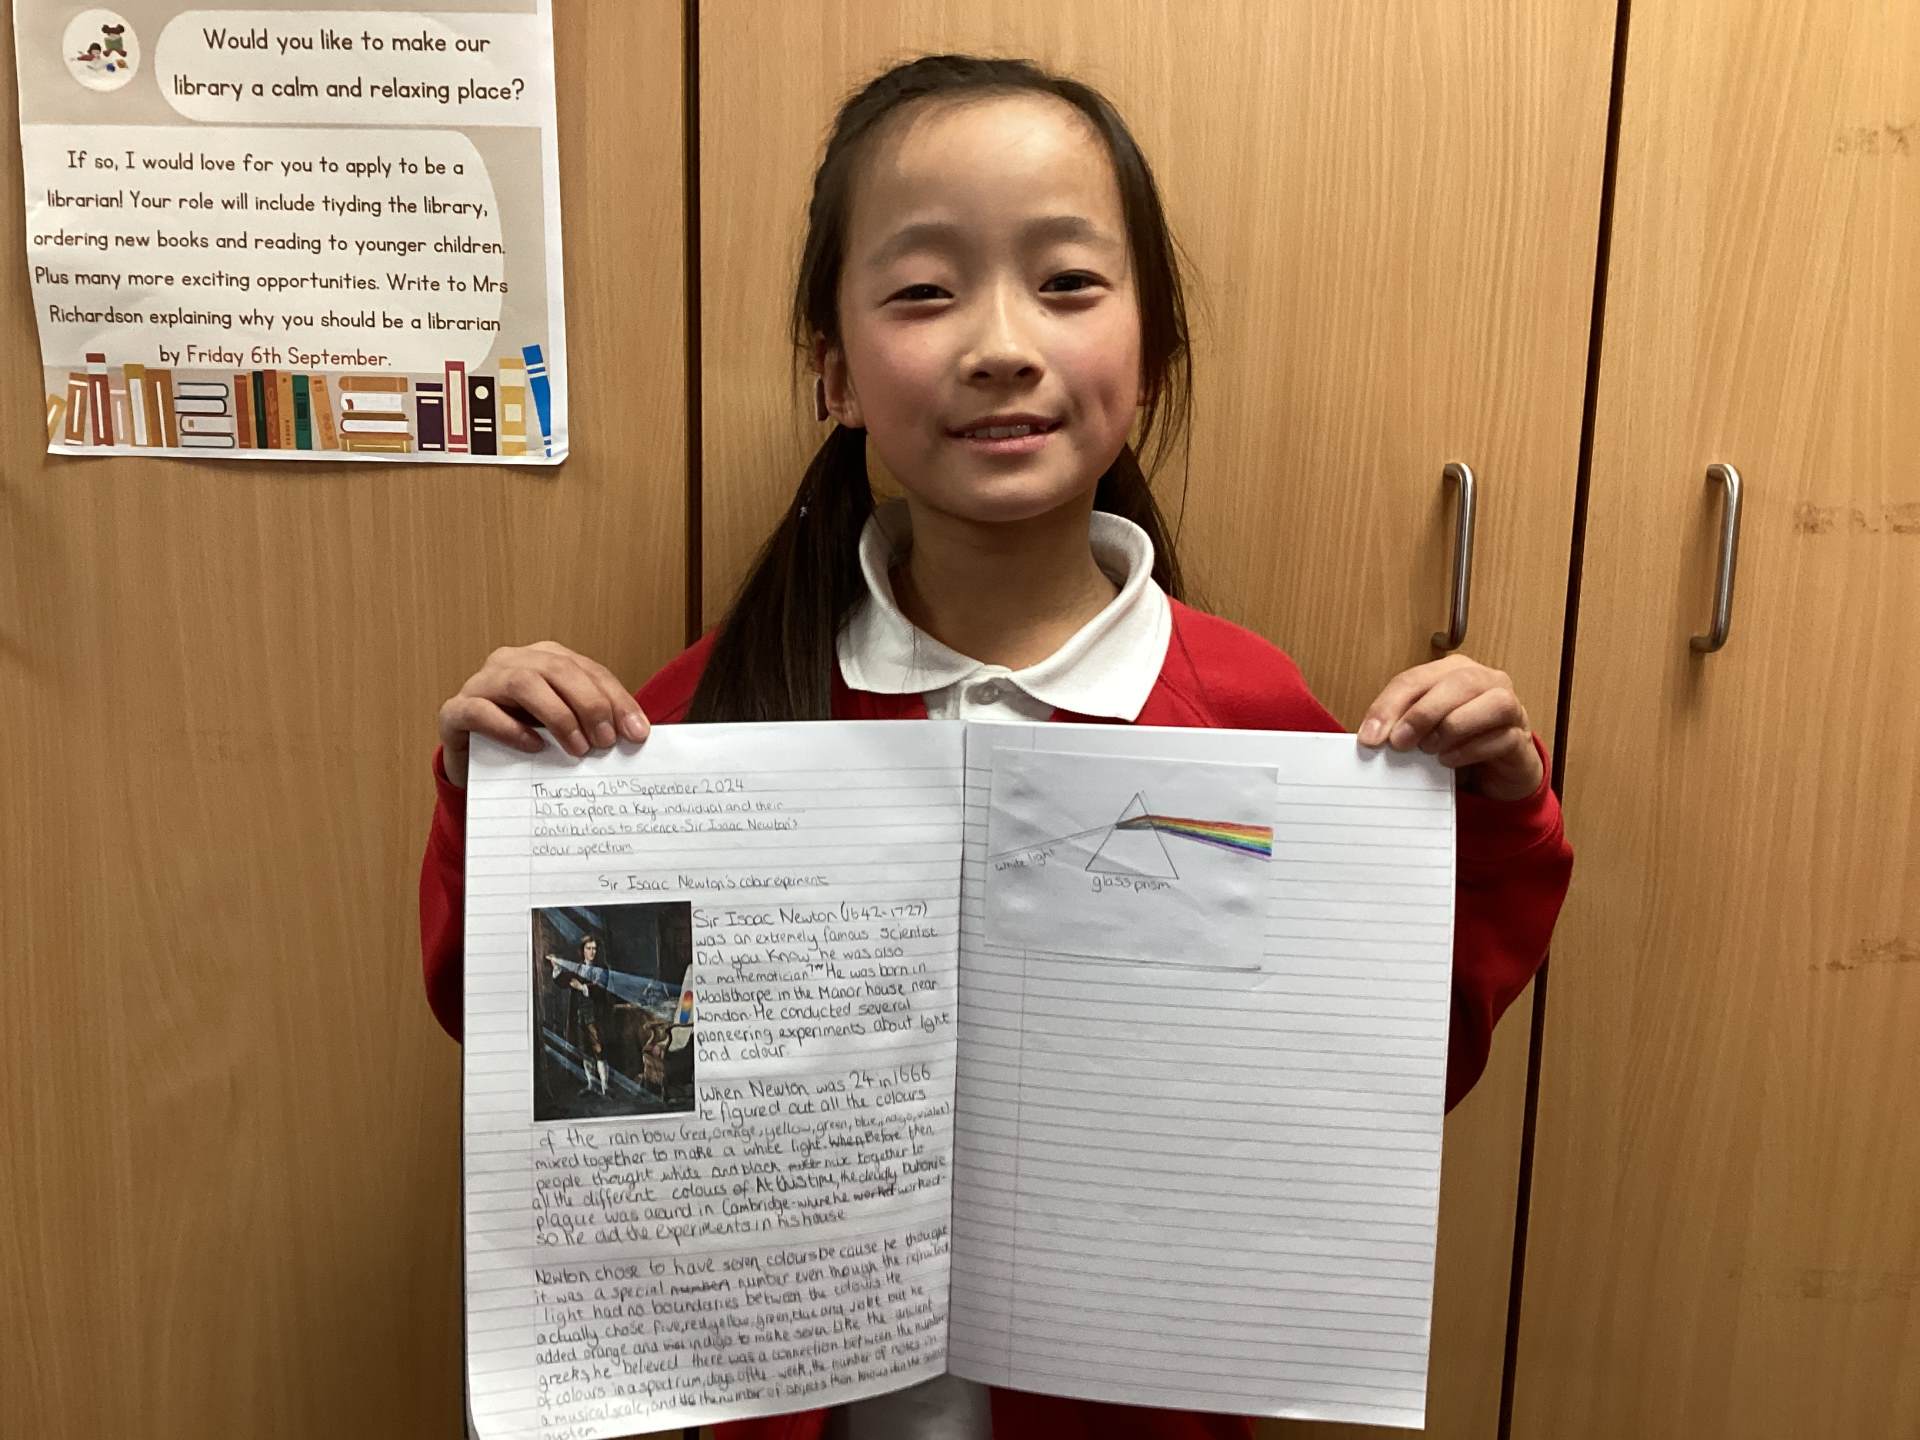 Would you like to make our
library a calm and relaxing place?
If so, I would love for you to apply to be a
librarian! Your role will include tiyding the library,
ordering new books and reading to younger children.
Plus many more exciting opportunities. Write to Mrs
Richardson explaining why you should be a librarian
by Friday 6th September.
Thursday 26th September 2024
LO. To explore a key individual and their
contributions to science-Sir Isaac Newton's
colour spectrum
Sir Isaac Newton's colour experiment
Sir Isaac Newton (1642-1727)
was an extremely famous scientist
Did you know he was also
a mathematician? He was born in
Woolsthorpe in the Manor house near
London. He conducted several
pioneering experiments about light
and colour.
When Newton was 24 in 1666
he figured out all the colours
of the rainbow (red, orange, yellow, green, blue, indigo, violet)
mixed together to make a white light. When Before then,
people thought white and black mix together to
all the different colours of At this time, the deadly bubonic
plague was around in Cambridge-where he worked worked-
so he did the experiments in his house
Newton chose to have seven colours be cause he thought
it was a special number number even though the refracted
light had no boundaries between the colours. He
actually chose five, red, yellow, green, blue and violet but he
added orange and indigo to make seven Like the ancient
greeks, he believed there was a connection between the number
of colours in a spectrum, days of the week, the number of notes in
a musical scale, and the number of objects then known in the solar
system
white light
glass prism